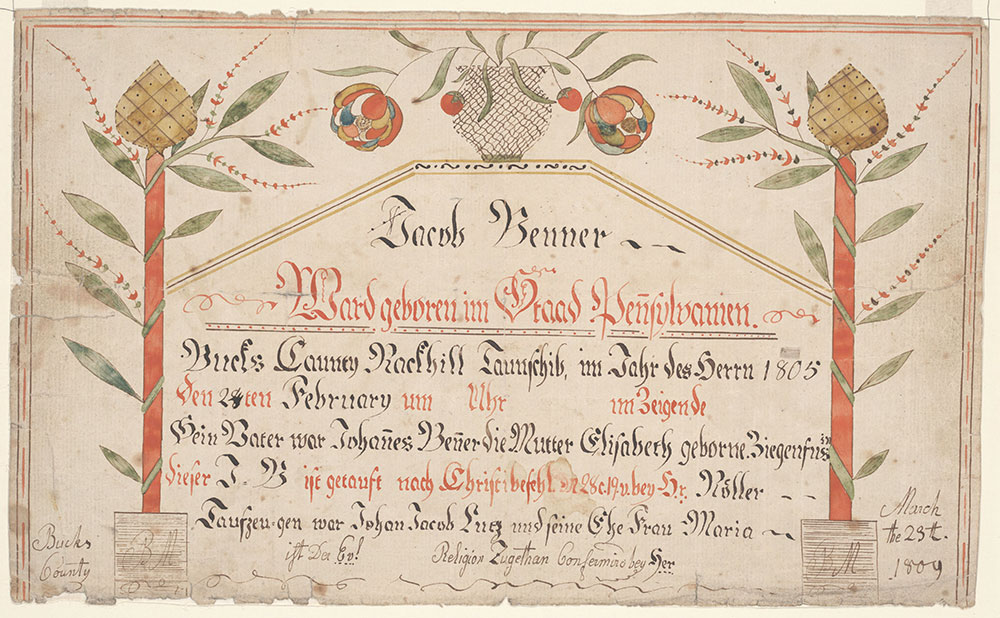 Jacob Benner
Ward geboren im Staad Peñsylvanien.
Bucks Caunty Rackhill Taunschib, im Jahr des Herrn 1805
Den 28ten February um Uhr im Zeigende
Sein Vater war Johañes Beñer die Mutter Elisabeth geborne Ziegenfus in
dieser J. B ist getauft nach Christi befehl 28 c. 19 v. bey Hr. Röller
Taufzeu-gen war Johan Jacob Lutz und seine Ehe Frau Maria
ist Der Ev! Religion Zugethan Confermird bey Her
Bucks
County
B M
B M
March
the 23th.
1809